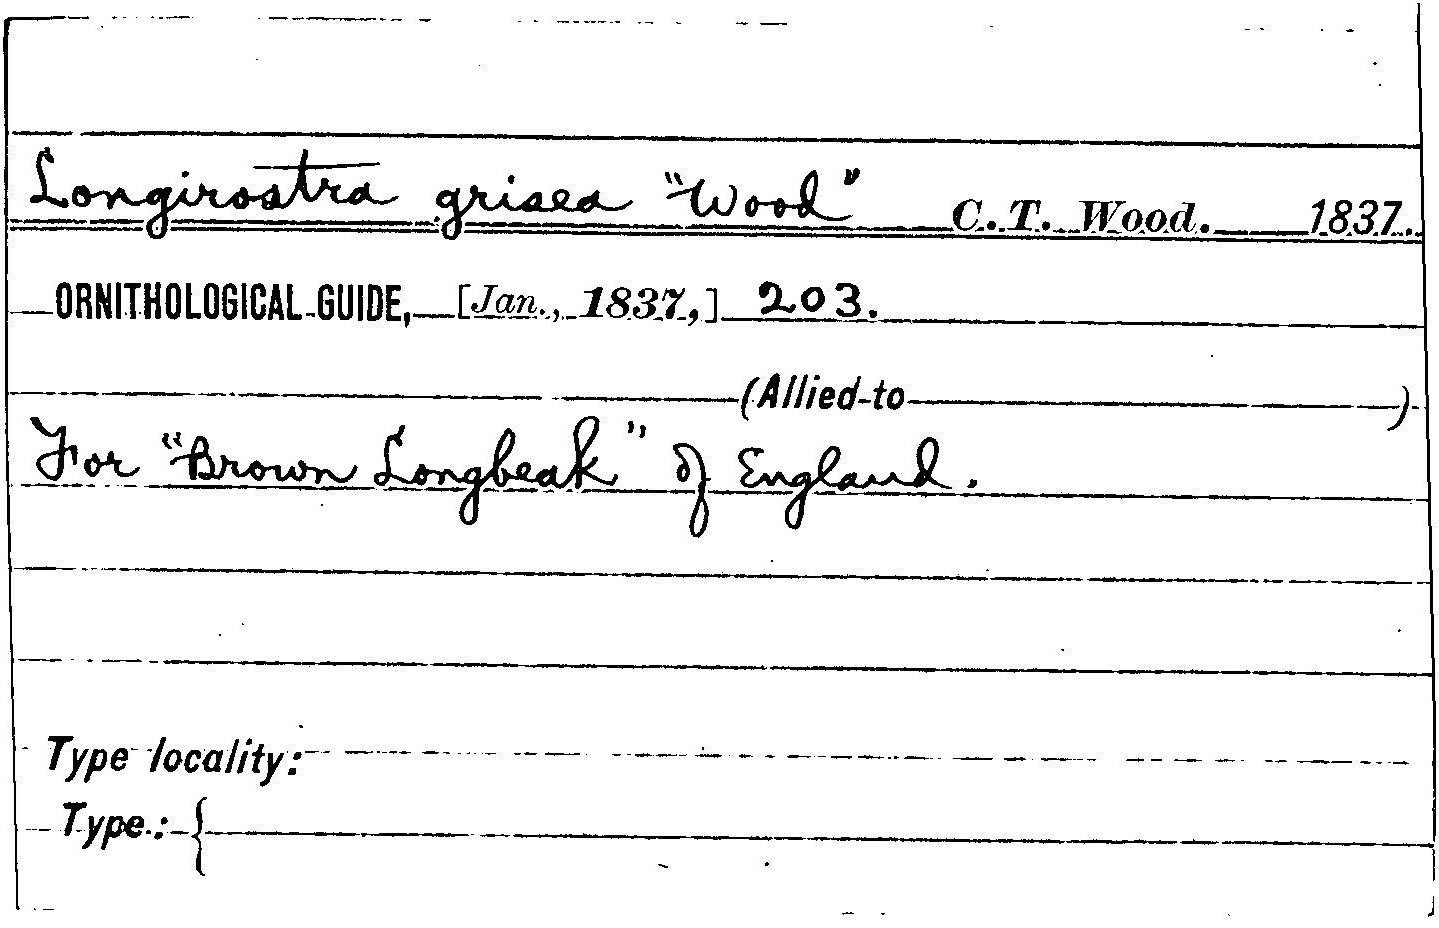 Longirostra grisea "Wood" C. T. Wood. 1837.
ORNITHOLOGICAL GUIDE, [Jan., 1837,] 203.
(Allied to )
For "Brown Longbeak" of England.
Type locality:
Type: {